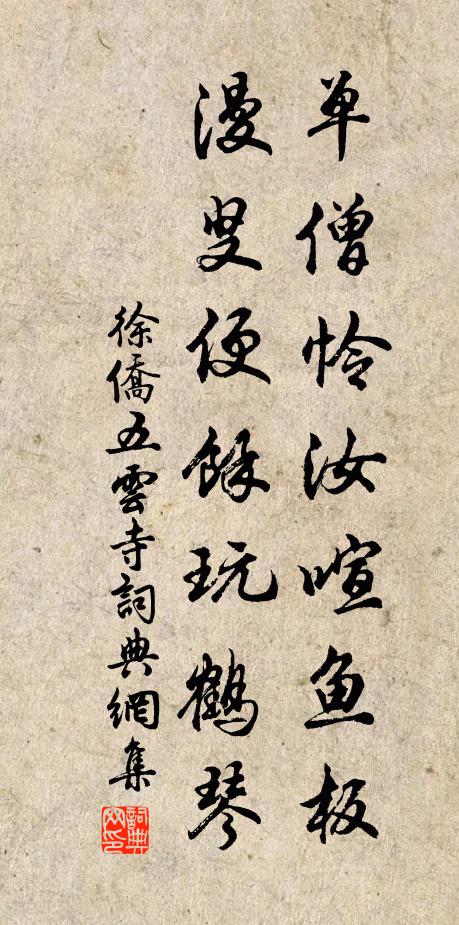 单僧怜汝喧鱼板
漫叟便馀玩鹤琴
徐僑五雲寺詞典網集
詞典
网印